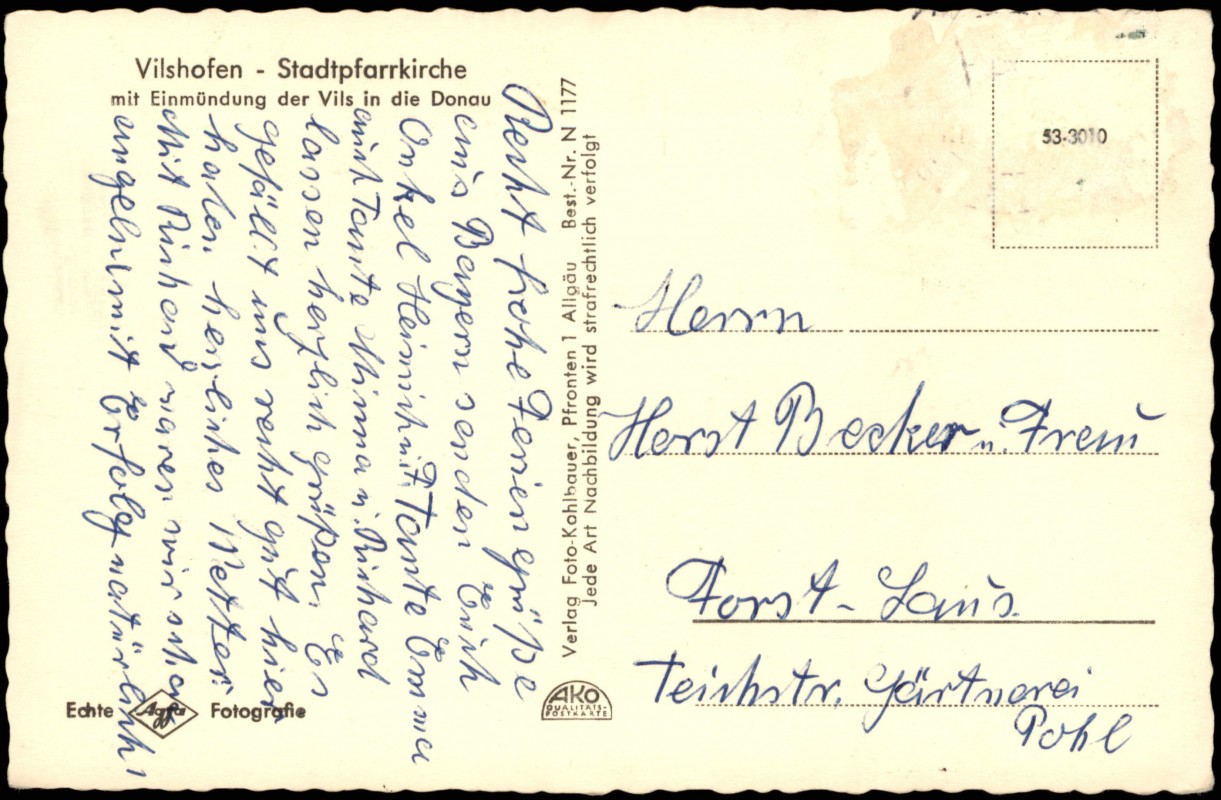 Vilshofen - Stadtpfarrkirche
mit Einmündung der Vils in die Donau
Recht frohe Feriengrüße
aus Bayern senden Euch
Onkel Heini mit Tante Emma
auch Tante Minna u. Richard
lassen herzlich grüßen. Es
gefällt uns recht gut hier
haben herrliches Wetter.
Mit Richard waren wir schon
angeln mit Erfolg natürlich!
Verlag Foto-Kohlbauer, Pfronten 1 Allgäu Best.-Nr. N 1177
Jede Art Nachbildung wird strafrechtlich verfolgt
Echte Agfa Fotografie
AKO
QUALITÄTS-
POSTKARTE
53-3010
Herrn
Horst Becker u. Frau
Forst - Laus.
Teichstr. Gärtnerei
Pohl